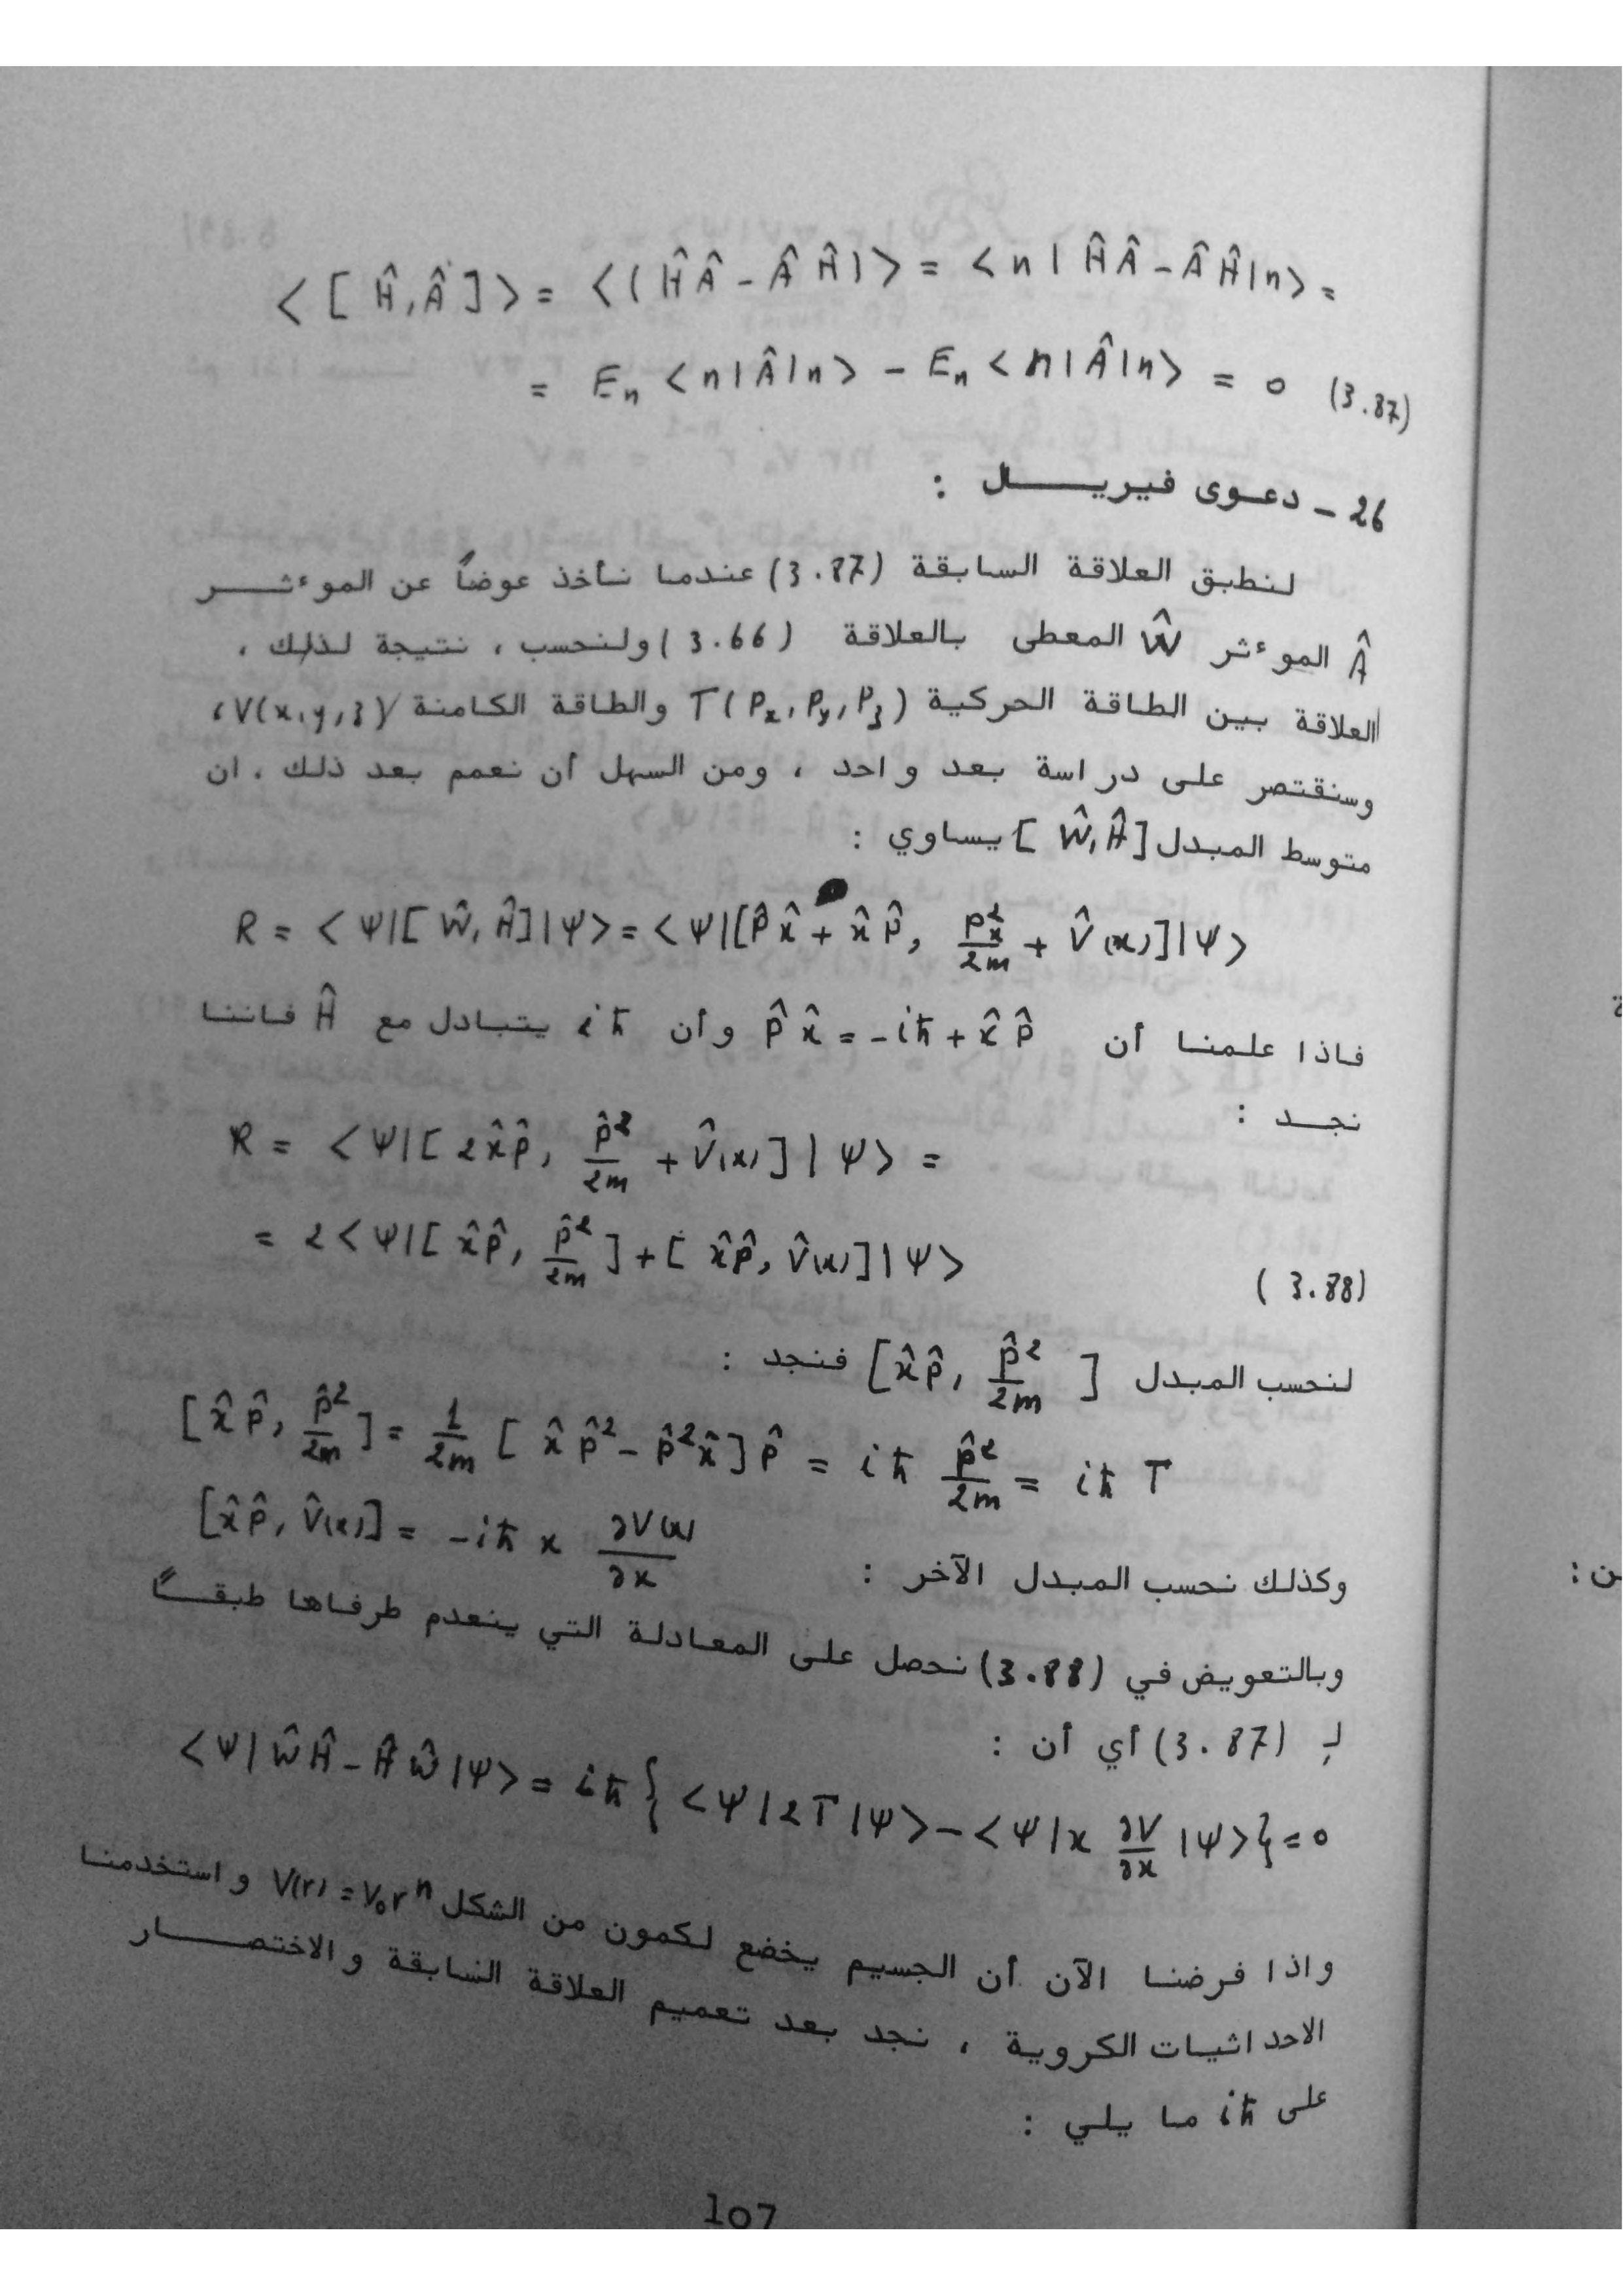 < [ Ĥ,Â ] > = < ( ĤÂ - ÂĤ ) > = < n | ĤÂ - ÂĤ | n > =
= Eₙ < n | Â | n > - Eₙ < n | Â | n > = 0 (3.87)
26 - دعوى فيريـــــال :
لنطبق العلاقة السابقة (3.87) عندما نأخذ عوضاً عن الموءثـــر
Â الموءثر Ŵ المعطى بالعلاقة (3.66) ولنحسب ، نتيجة لذلك ،
العلاقة بين الطاقة الحركية T(Pₓ, Pᵧ, P_z) والطاقة الكامنة V(x,y,z) ،
وسنقتصر على دراسة بعد واحد ، ومن السهل أن نعمم بعد ذلك . ان
متوسط المبدل [ Ŵ, Ĥ ] يساوي :
R = < Ψ | [ Ŵ, Ĥ ] | Ψ > = < Ψ | [ p̂ x̂ + x̂ p̂, pₓ²/2m + V̂(x) ] | Ψ >
فاذا علمنا أن p̂ x̂ = -iħ + x̂ p̂ وأن iħ يتبادل مع Ĥ فاننا
نجـد :
R = < Ψ | [ 2x̂p̂, p̂²/2m + V̂(x) ] | Ψ > =
= 2 < Ψ | [ x̂p̂, p̂²/2m ] + [ x̂p̂, V̂(x) ] | Ψ >
(3.88)
لنحسب المبدل [ x̂p̂, p̂²/2m ] فنجد :
[ x̂p̂, p̂²/2m ] = 1/2m [ x̂ p̂² - p̂² x̂ ] p̂ = iħ p̂²/2m = iħ T
وكذلك نحسب المبدل الآخر : [ x̂p̂, V̂(x) ] = -iħ x ∂V(x)/∂x
وبالتعويض في (3.88) نحصل على المعادلة التي ينعدم طرفاها طبقــاً
لـ (3.87) أي أن :
< Ψ | ŴĤ - ĤŴ | Ψ > = iħ { < Ψ | 2T | Ψ > - < Ψ | x ∂V/∂x | Ψ > } = 0
واذا فرضنا الآن أن الجسيم يخضع لكمون من الشكل V(r) = V₀rⁿ واستخدمنا
الاحداثيات الكروية ، نجد بعد تعميم العلاقة السابقة والاختصـــار
على iħ ما يلي :
107